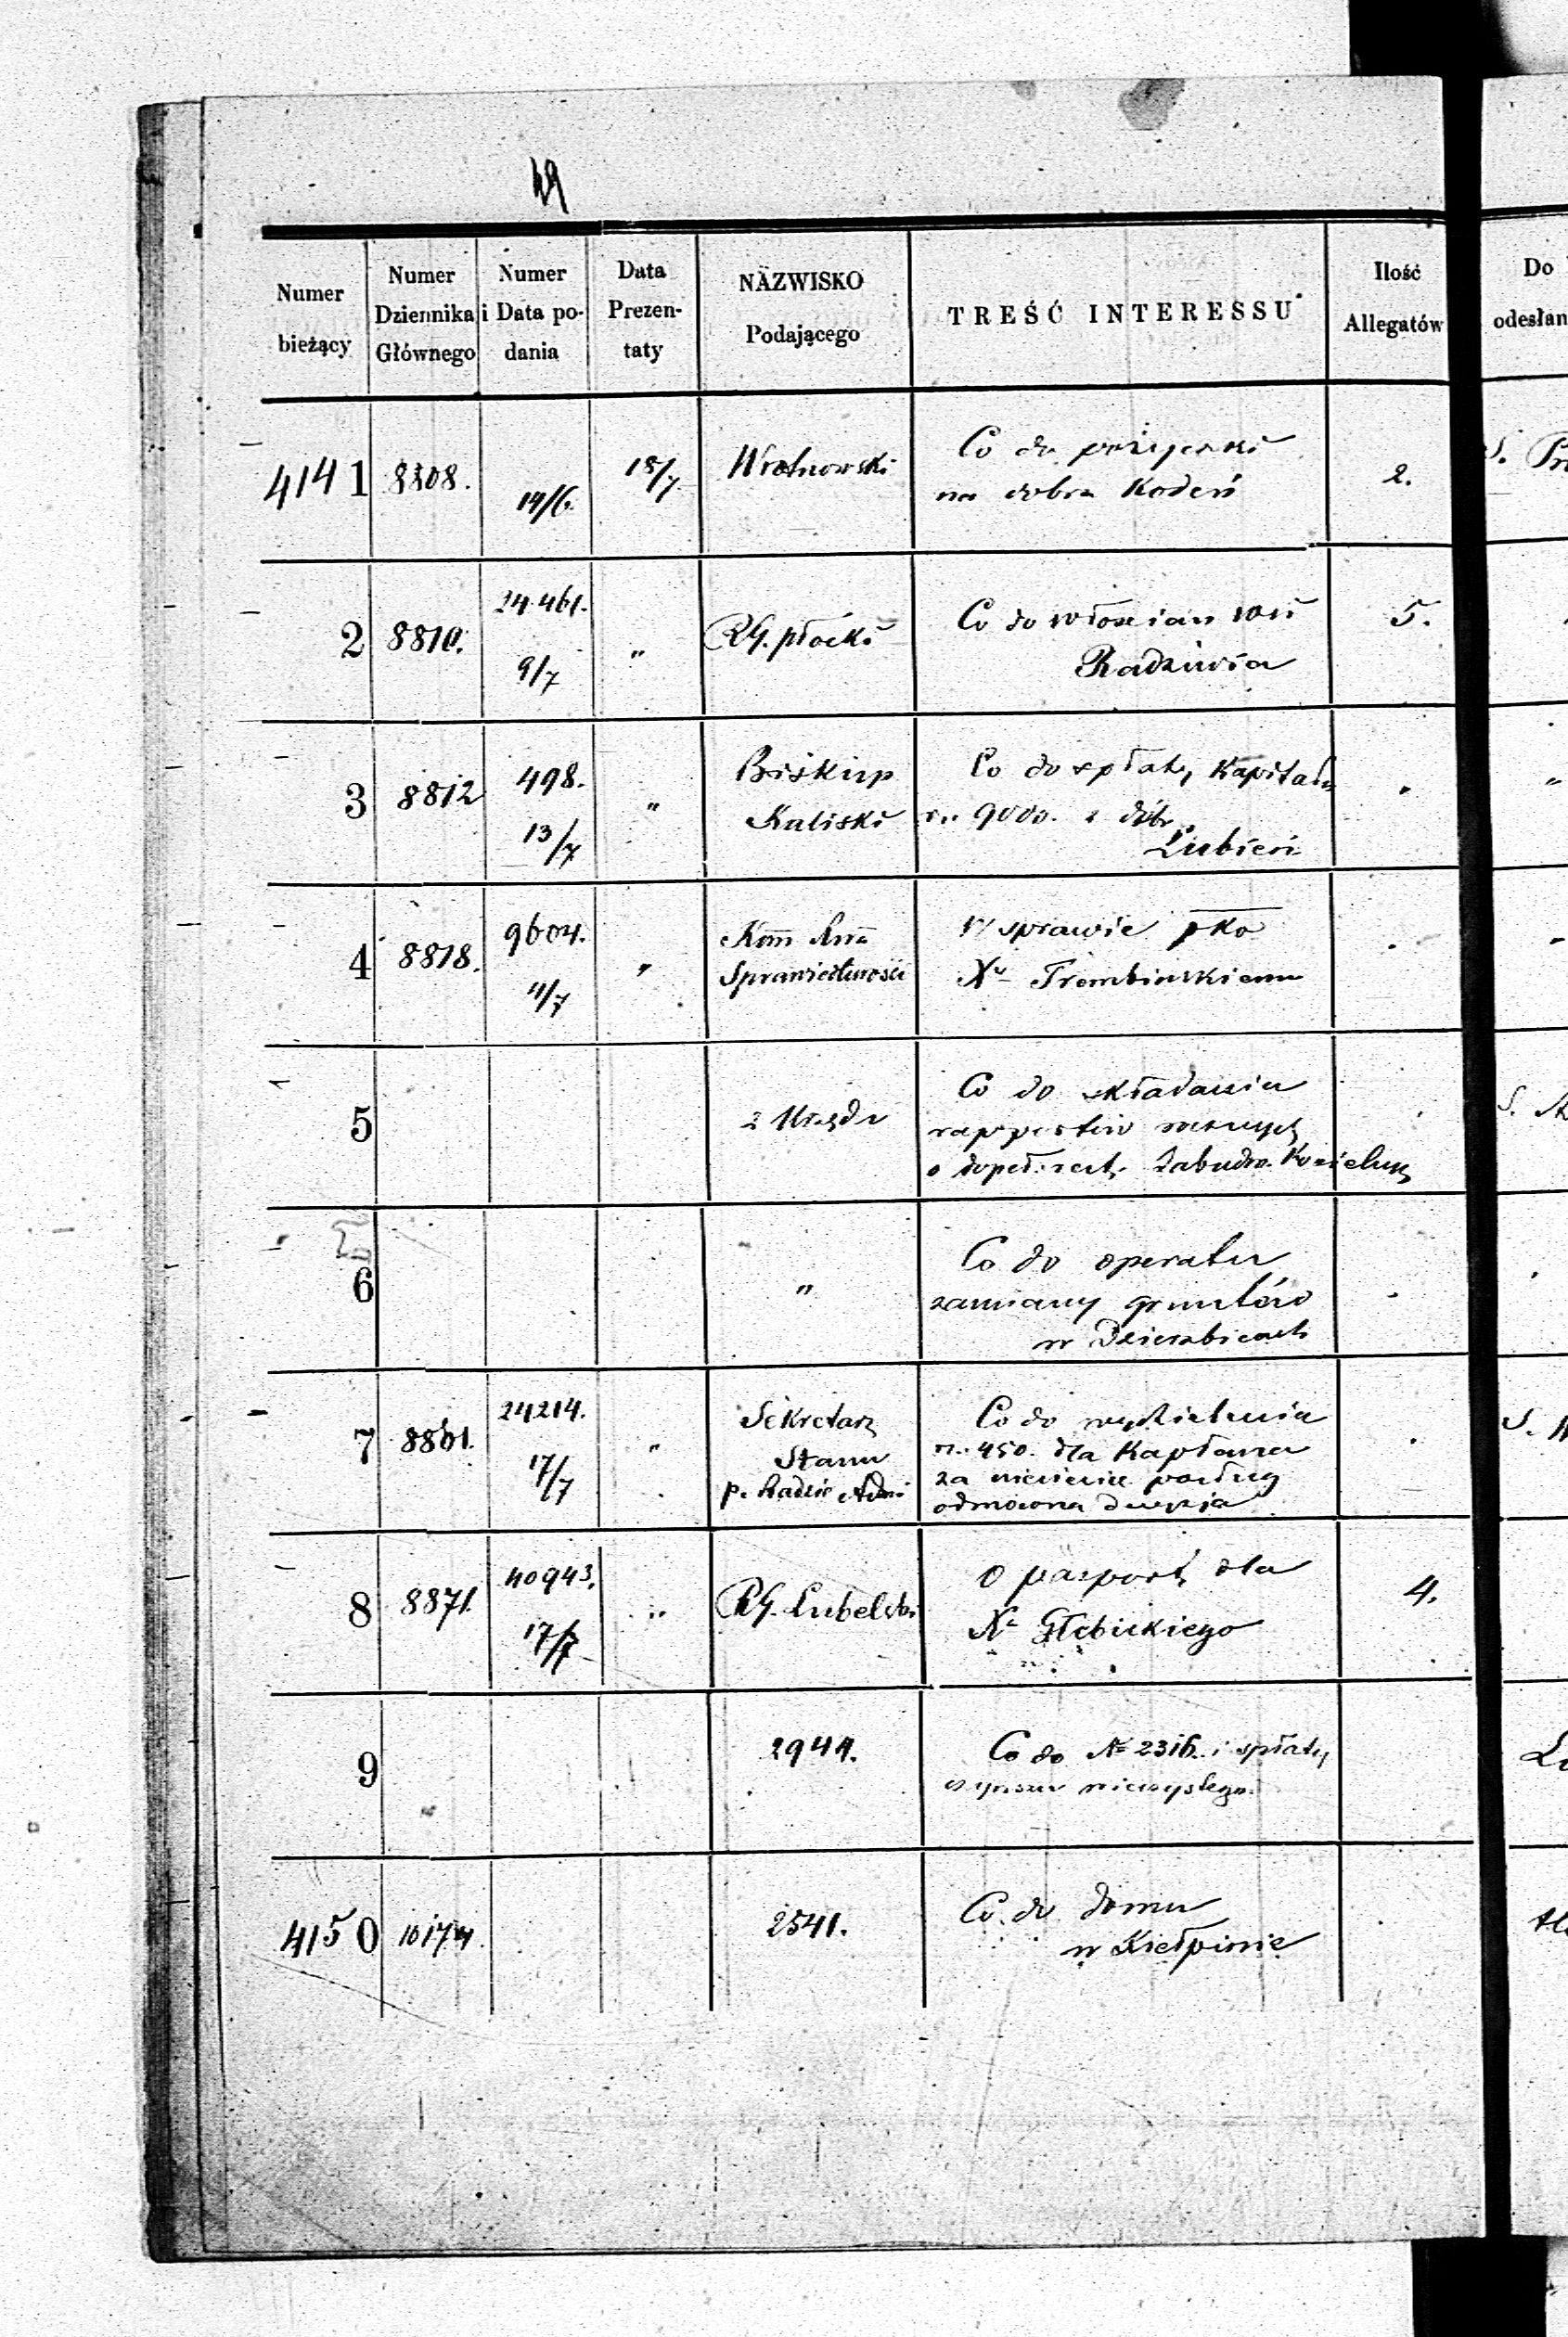 49
Numer bieżący
Numer Dziennika Głównego
Numer i Data podania
Data Prezentaty
NAZWISKO Podającego
TREŚĆ INTERESSU
Ilość Allegatów
Do
odesłan
4141 8808. 14/6. 18/7 Wrotnowski Co do pożyczki 2.
na dobra Kodeń
2 8810. 24461. 9/7 " RG. płocki Co do włościan wsi 5.
Radziwia
3 8812 498. 13/7 " Biskup Kaliski Co do spłaty Kapitału "
rs. 9000. z dóbr
Lubień
4 8818. 9604. 11/7 " Kom Sprawiedliwości W sprawie pko
Xu Trombinskiemu
5 z Urzędu Co do składania
rapportów
o dopeł. Zabudow. Kościelnych
6 " Co do operatu
zamiany gruntów
w Dzierzbicach
7 8861. 24214. 17/7 " Sekretarz Stanu p. Radzie Adm Co do wydzielenia
rs. 450. dla Kapłana
za
odmowna Decyzja
8 8871. 40943. 17/7 " RG. Lubelski O paszport dla 4.
Xa Głębickiego
9 2944. Co do № 2316. i spłaty
czynszu wieczystego.
4150 10174 2541. Co do domu
w Kiełpinie